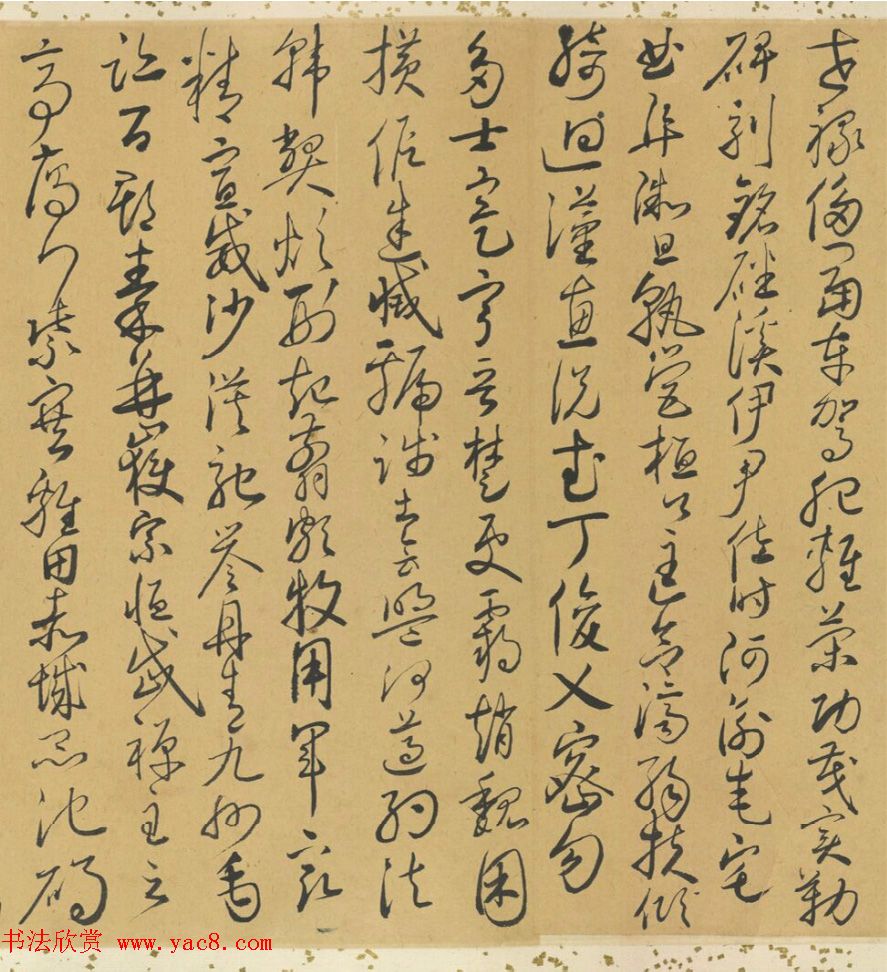 世祿侈富車駕肥輕策功茂實勒
碑刻銘磻溪伊尹佐時阿衡奄宅
曲阜微旦孰營桓公匡合濟弱扶傾
綺迴漢惠說武丁俊乂密勿
多士寔寧晉楚更霸趙魏困
橫假途滅虢踐土會盟何遵約法
韓弊煩刑起翦頗牧用軍最
精宣威沙漠馳譽丹青九州禹
跡百郡秦并嶽宗恒岱禪主云
亭鴈門紫塞雞田赤城昆池碣
书法欣赏 www.yac8.com